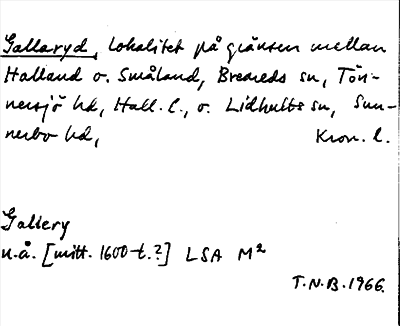 Gallaryd, lokalitet på gränsen mellan
Halland o. Småland, Breareds sn, Tön-
nersjö hd, Hall. l., o. Lidhults sn, Sun-
nerbo hd, Kron. l.
Gallery
u.å. [mitt. 1600-t.?] LSA M²
T.N.B. 1966.